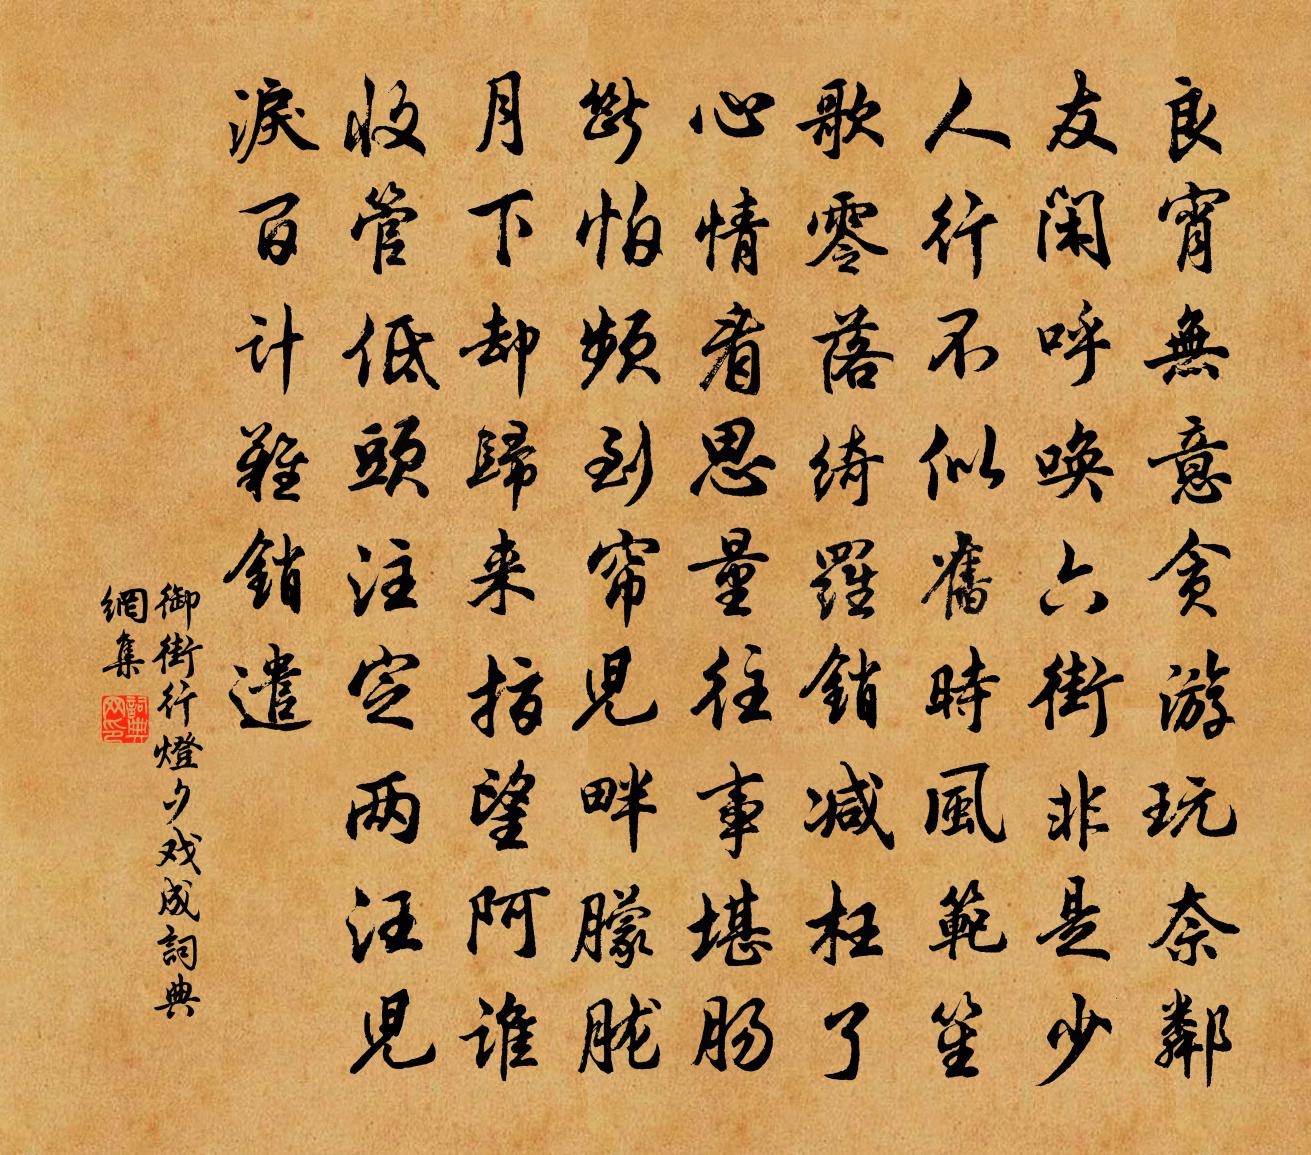 良宵無意貪游玩奈鄰
友閑呼喚六街非是少
人行不似舊時風範笙
歌零落綺羅銷減枉了
心情看思量往事堪腸
斷怕頻到帘兒畔朦朧
月下却歸来指望阿誰
收管低頭注定两汪兒
淚百計難銷遣
御街行燈夕戏成詞典
網集